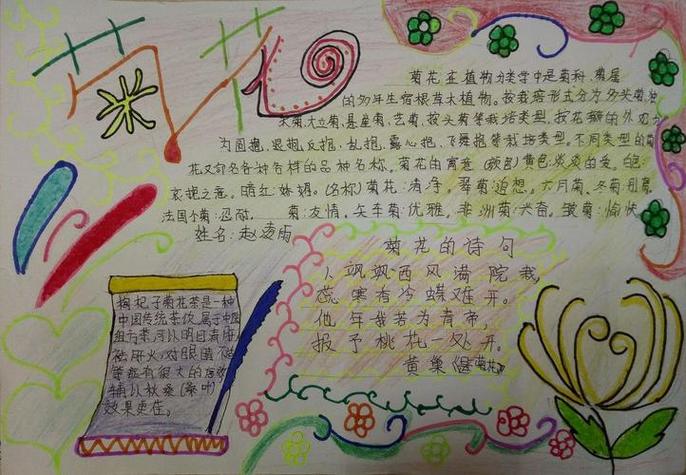 菊花
菊花在植物分类学中是菊科、菊属
的多年生宿根草本植物。按栽培形式分为多头菊、独
本菊、大立菊、悬崖菊、艺菊、按头菊等栽培类型。按花瓣的外观分
为园抱、退抱、反抱、乱抱、露心抱、飞舞抱等栽培类型。不同类型的菊
花又命名各种各样的品种名称。菊花的寓意(颜色)黄色:淡淡的爱。白色:
哀挽之意。暗红:妩媚。(名称)菊花:清净。翠菊:追想。六月菊、冬菊:别离
法国小菊:忍耐。菊:友情。矢车菊:优雅。非洲菊:兴奋。皱菊:愉快
姓名:赵凌雨
菊花的诗句
飒飒西风满院栽,
蕊寒香冷蝶难来。
他年我若为青帝,
报予桃花一处开。
黄巢《题菊花》
枸杞子菊花茶是一种
中国传统茶饮,属于中国
组方茶,可以明目清肝,
祛肝火,对眼睛
有很大的
辅以秋桑(桑叶)
效果更佳。